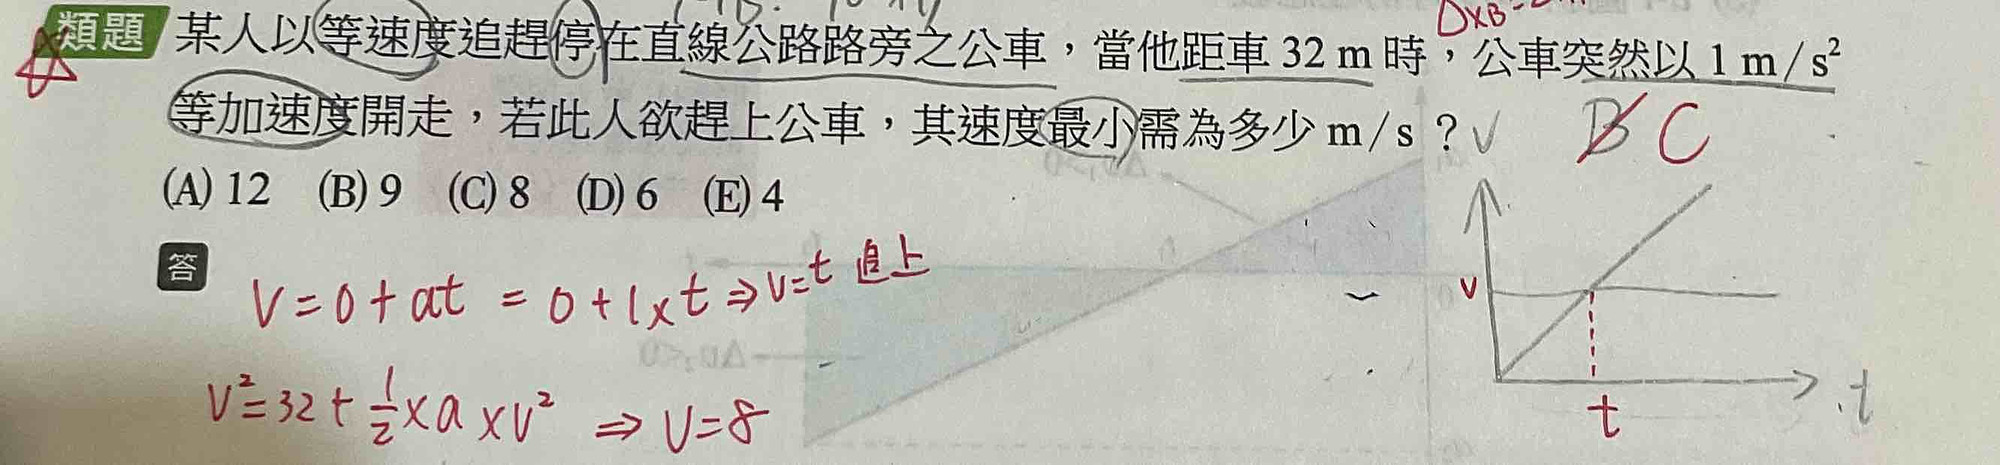 類題 某人以等速度追趕停在直線公路路旁之公車，當他距車 32 m 時，公車突然以 1 m/s²
等加速度開走，若此人欲趕上公車，其速度最小需為多少 m/s？
B C
(A) 12 (B) 9 (C) 8 (D) 6 (E) 4
答
V=0+at = 0+1×t ⇒ V=t 追上
V²=32+½×a×V² ⇒ V=8
V
V
t
t